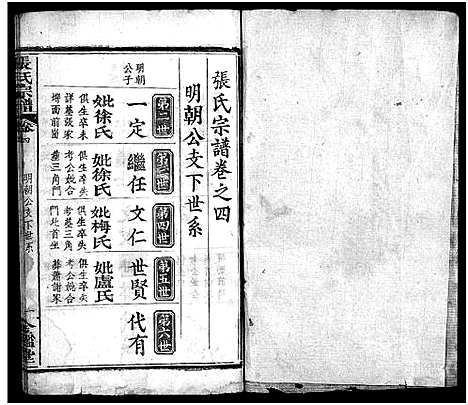 張氏宗譜卷之四
明朝公支下世系
第二世
第三世
第四世
第五世
第六世
明朝
公子
一定
繼任
文仁
世賢
代有
妣徐氏
妣徐氏
妣梅氏
妣盧氏
俱生卒未
詳墓張家
塆面前崗
俱生卒失
考公妣合
墓三角門
俱生卒失
考墓三角
門北首坐
俱生卒失
考公妣合
葬蕭謝
張氏宗譜
卷四
明朝公支下世系
一